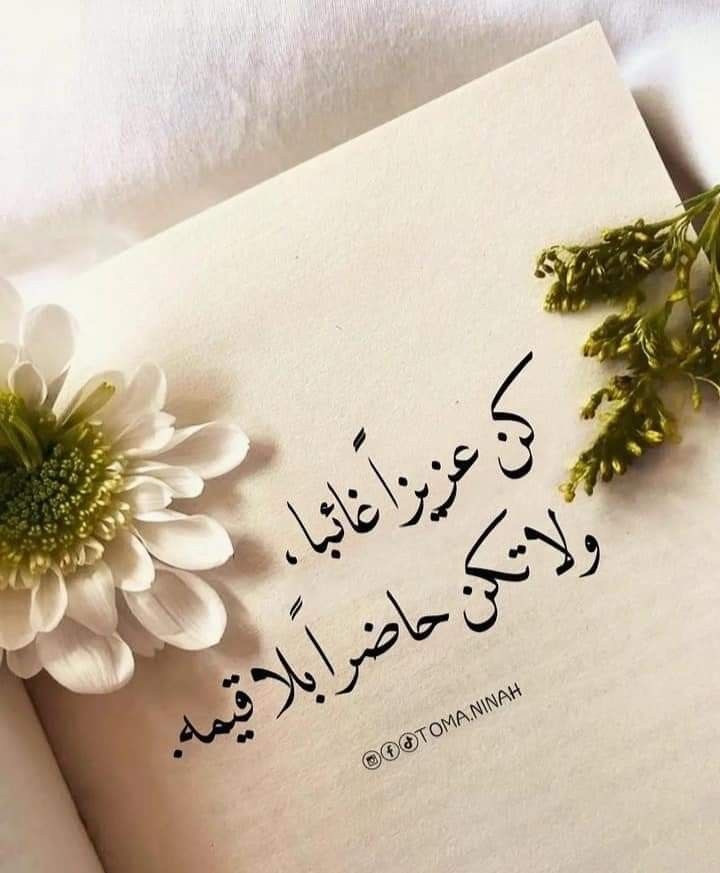 كن عزيزاً غائبا ،
ولا تكن حاضراً بلا قيمه.
TOMA.NINAH